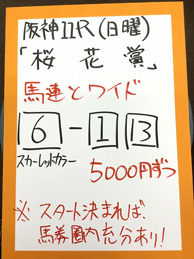 阪神11R(日曜)
「桜花賞」
馬連とワイド
6-1 13
スカーレットカラー
5000円ずつ
※スタート決まれば、
馬券圏内充分あり!